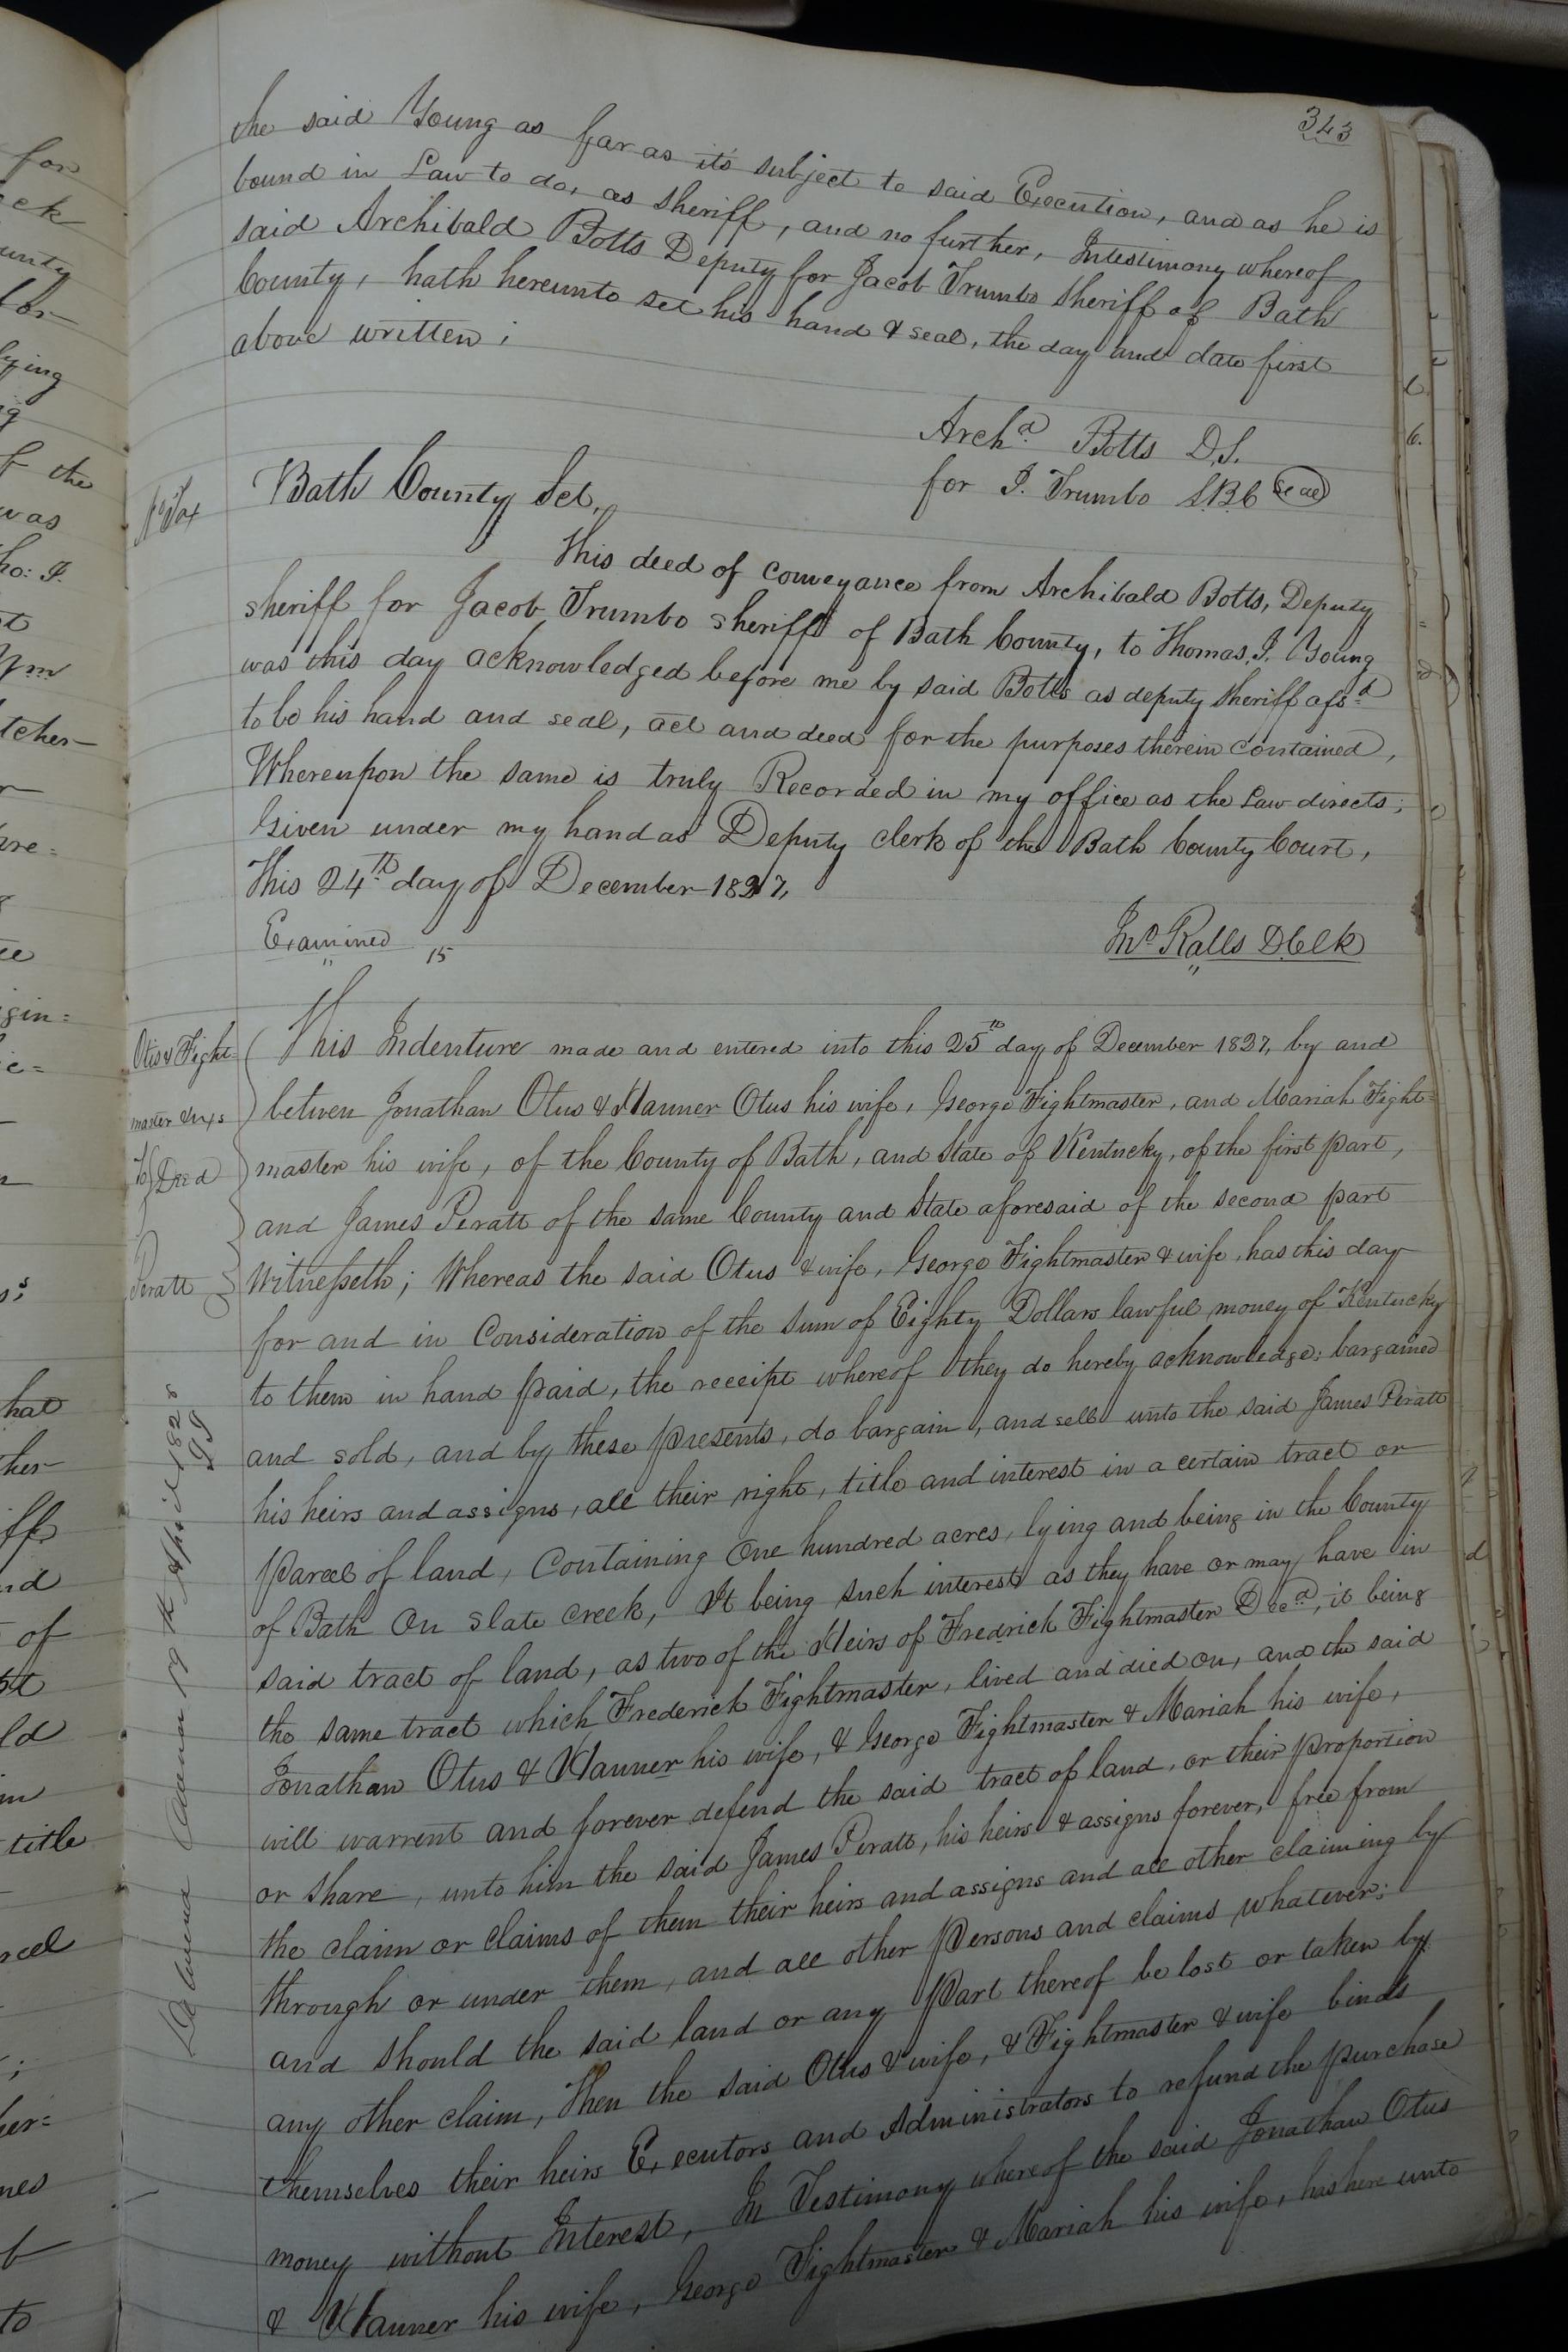 343
the said Young as far as its subject to said Execution, and as he is
bound in Law to do, as sheriff, and no further, Intestimony whereof
said Archibald Botts Deputy for Jacob Trumbo sheriff of Bath
County, hath hereunto set his hand & seal, the day and date first
above written;
Archd. Botts D.S.
for J. Trumbo S.B.C Seal
Bath County Sct,
This deed of conveyance from Archibald Botts, Deputy
sheriff for Jacob Trumbo sheriff of Bath County, to Thomas. J. Young
was this day acknowledged before me by said Botts as deputy sheriff afsd
to be his hand and seal, act and deed for the purposes therein contained,
Whereupon the same is truly Recorded in my office as the Law directs;
Given under my hand as Deputy clerk of the Bath County Court,
This 24th day of December 1827,
Examined 15
Jno Ralls DClk
Otis & Fight=
master & wfs
To Deed
Peratt
This Indenture made and entered into this 25th day of December 1827, by and
betwen Jonathan Otus & Hanner Otus his wife, George Fightmaster, and Mariah Fight=
master his wife, of the County of Bath, and State of Kentucky, of the first part,
and James Peratt of the same County and State aforesaid of the second part
Witnesseth; Whereas the said Otus & wife, George Fightmaster & wife, has this day
for and in Consideration of the sum of Eighty Dollars lawful money of Kentucky
to them in hand paid, the receipt whereof they do hereby acknowledge; bargained
and sold, and by these presents, do bargain, and sell unto the said James Peratt
his heirs and assigns, all their right, title and interest in a certain tract or
parcel of land, Containing One hundred acres, lying and being in the County
of Bath On Slate Creek, It being such interest as they have or may have in
said tract of land, as two of the Heirs of Fredrick Fightmaster Decd, it being
the same tract which Frederick Fightmaster, lived and died on, and the said
Jonathan Otus & Hanner his wife, & George Fightmaster & Mariah his wife,
will warrent and forever defend the said tract of land, or their proportion
or share, unto him the said James Peratt, his heirs & assigns forever, free from
the claim or claims of them their heirs and assigns and all other claiming by
through or under them, and all other persons and claims whatever;
and should the said land or any part thereof be lost or taken by
any other claim, Then the said Otus & wife, & Fightmaster & wife binds
themselves their heirs Executors and Administrators to refund the purchase
money without Interest, In Testimony whereof the said Jonathan Otus
& Hanner his wife, George Fightmaster & Mariah his wife, has here unto
April 1828